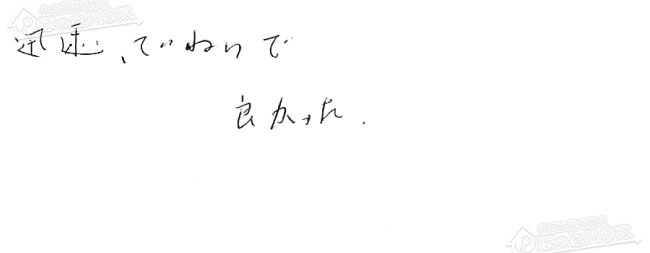 迅速、ていねいで
良かった.